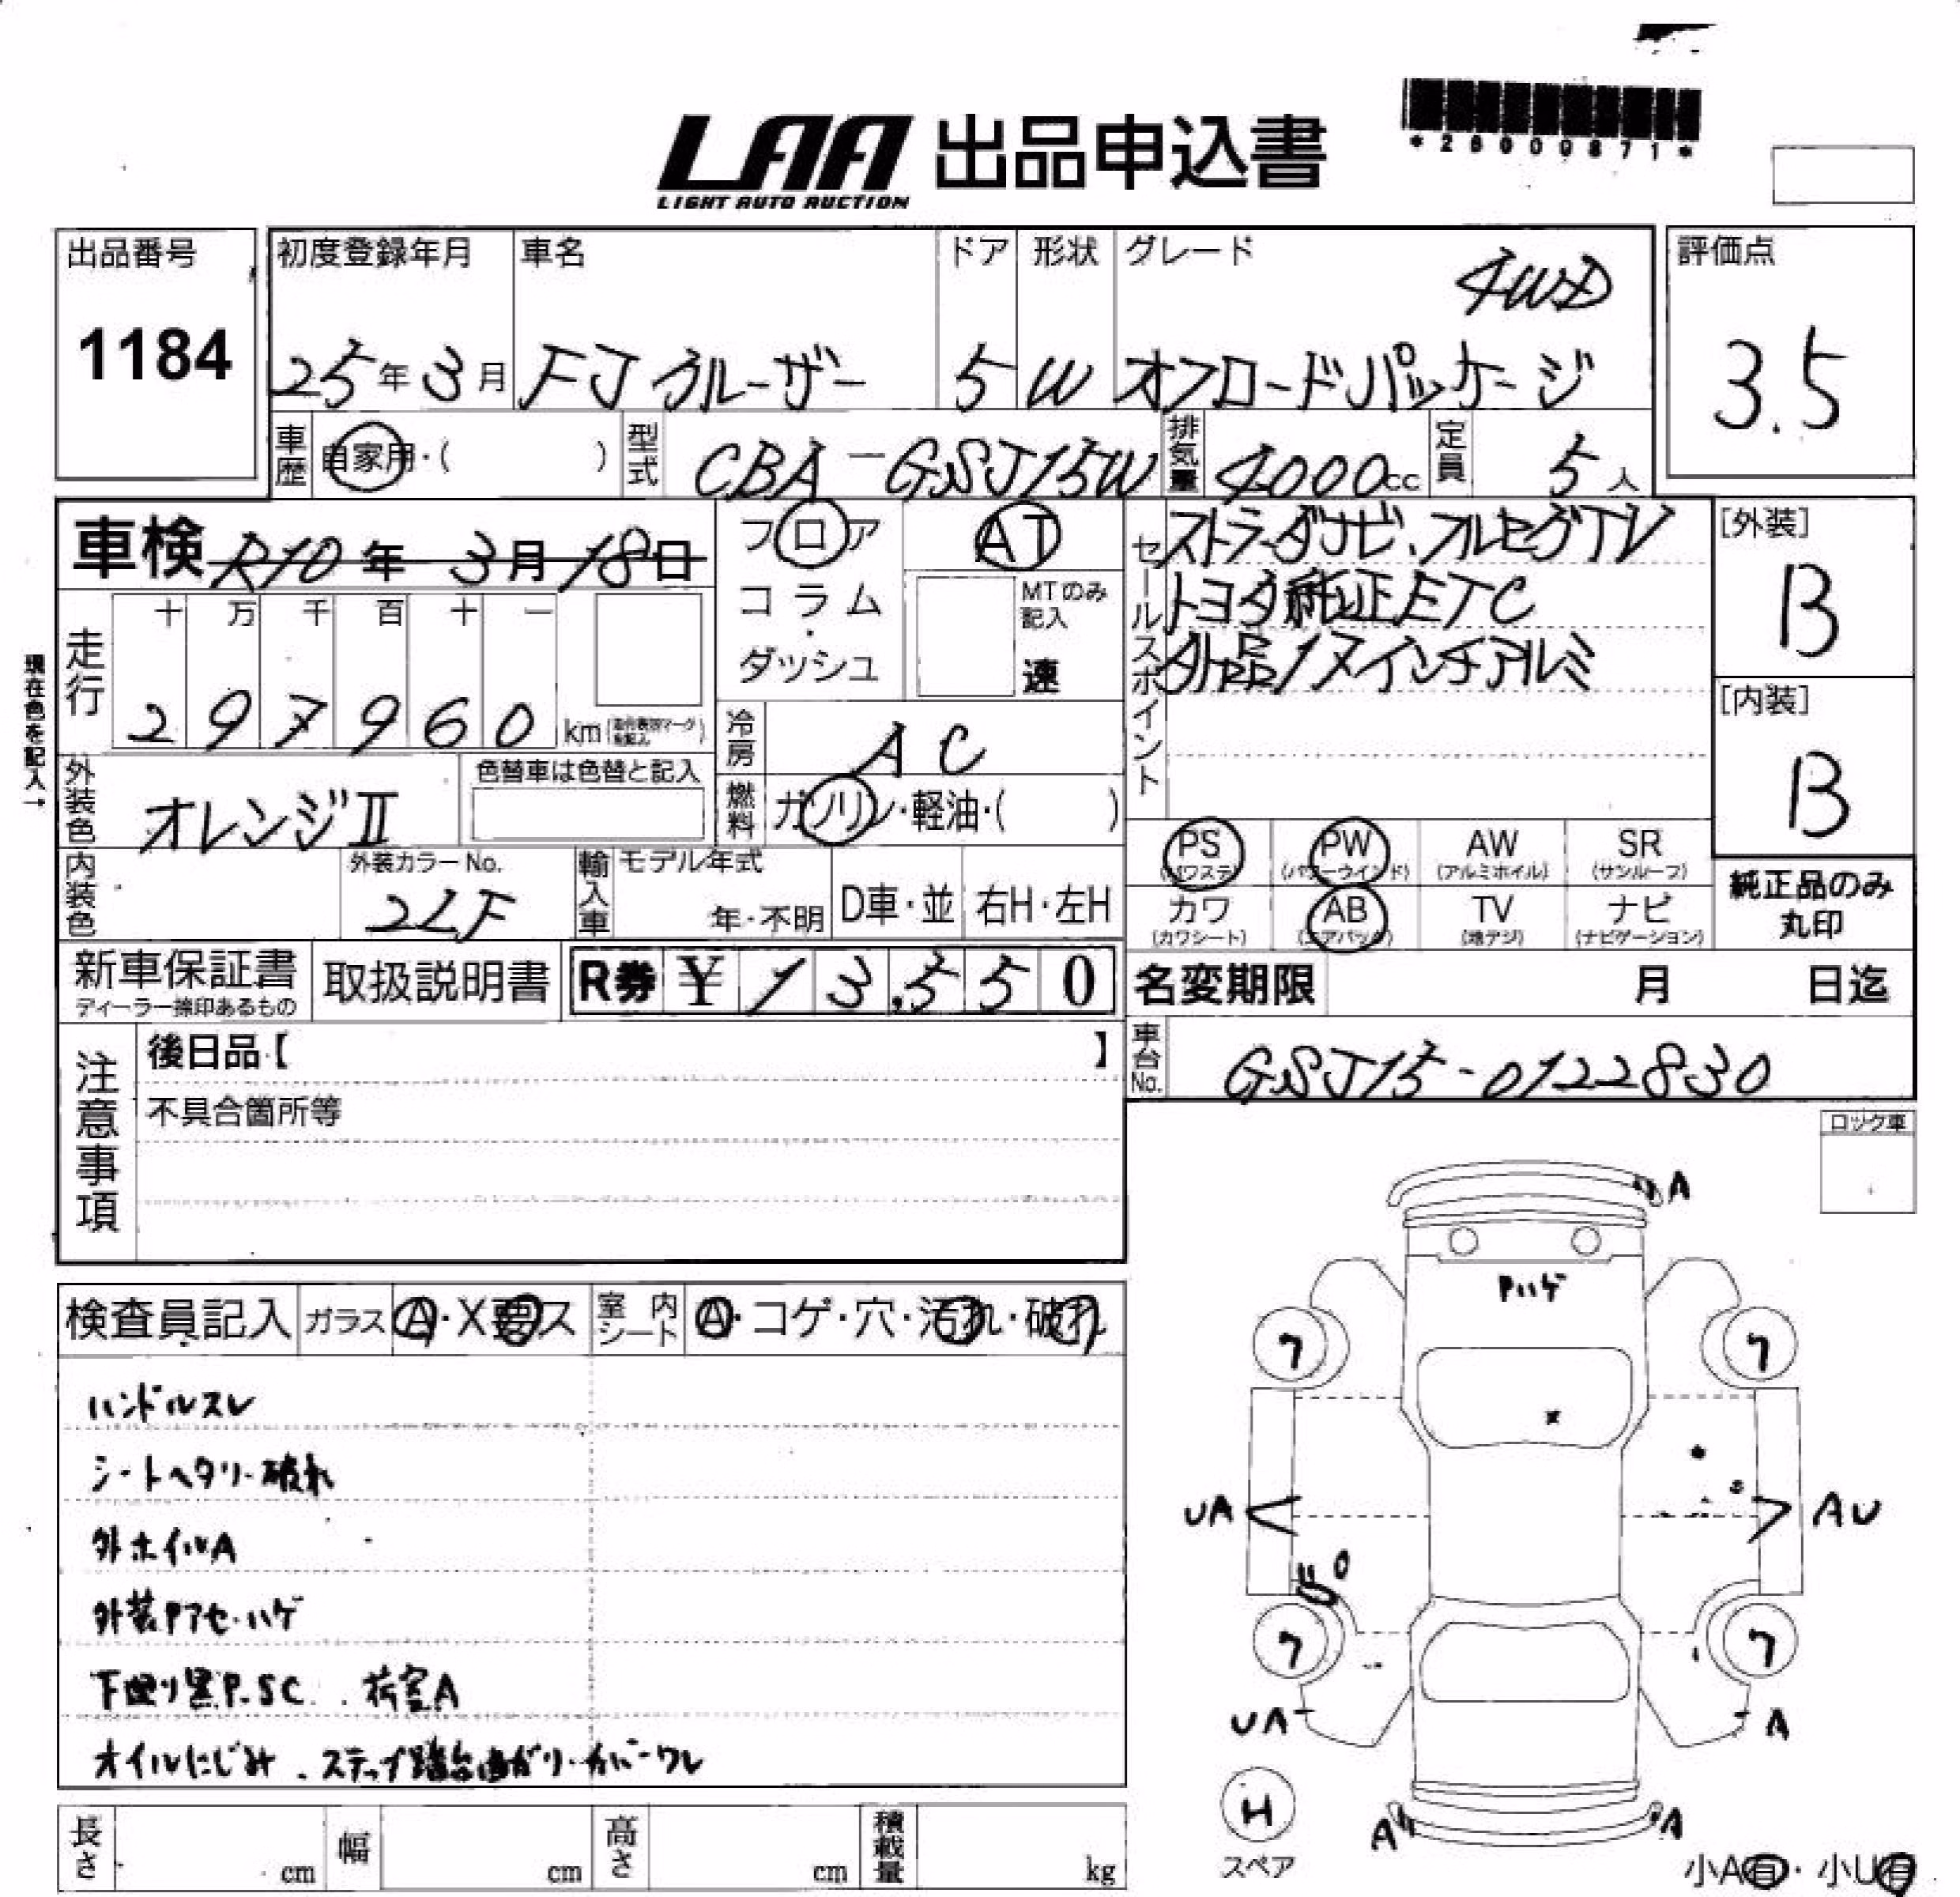 LAA 出品申込書
LIGHT AUTO AUCTION
*26000871*
出品番号
1184
初度登録年月
25年3月
車名
FJクルーザー
ドア
5
形状
W
グレード
4WD
オフロードパッケージ
評価点
3.5
車歴
自家用・( )
型式
CBA-GSJ15W
排気量
4000cc
定員
5人
車検 R10年3月18日
フロア
コラム
・
ダッシュ
AT
MTのみ
記入
速
セールスポイント
ストラーダナビ、フルセグTV
トヨタ純正ETC
外品17インチアルミ
[外装]
B
[内装]
B
現在色を記入→
走行
十 万 千 百 十 一
2 9 7 9 6 0 km
冷房
AC
外装色
オレンジⅡ
色替車は色替と記入
燃料
ガソリン・軽油・( )
PS PW
(パワーウインド)
AW
(アルミホイル)
SR
(サンルーフ)
カワ
(カワシート)
AB
(エアバッグ)
TV
(地デジ)
ナビ
(ナビゲーション)
純正品のみ
丸印
内装色
外装カラーNo.
2LF
輸入車
モデル年式
年・不明
D車・並
右H・左H
新車保証書
ディーラー捺印あるもの
取扱説明書
R券 ¥13,550
名変期限 月 日迄
車台No.
GSJ15-0122830
注意事項
後日品【 】
不具合箇所等
ロック車
検査員記入
ガラス
A・X要ス
室内シート
A・コゲ・穴・汚れ・破れ
ハンドルスレ
シートヘタリ・破れ
外ホイルA
外装Pアセ・ハゲ
下廻り黒P.SC. 荷室A
オイルにじみ、ステップ踏台曲がり・カバーワレ
A
Pハゲ
7 7
x
UA AU
7 7
UA A
H
スペア
A A
小A有・小U有
長さ cm
幅 cm
高さ cm
積載量 kg